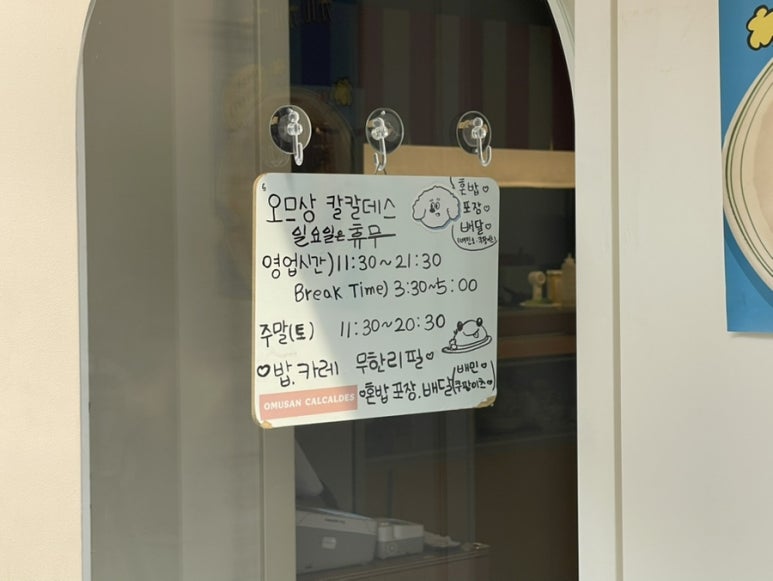 오므상 칼칼데스
일요일은 휴무
영업시간) 11:30~21:30
Break Time) 3:30~5:00
주말(토) 11:30~20:30
♡밥.카레 무한리필♡
OMUSAN CALCALDES
♡혼밥 포장.배달(배민 쿠팡이츠♡)
혼밥♡
포장♡
배달♡